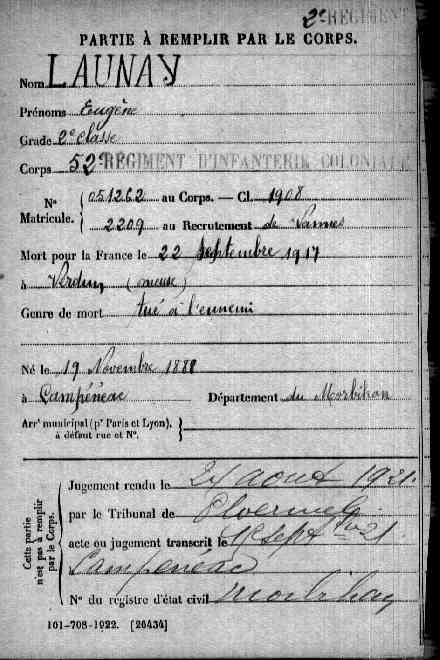 2e REGIMENT
PARTIE À REMPLIR PAR LE CORPS.
Nom LAUNAY
Prénoms Eugène
Grade 2e classe
Corps 52e RÉGIMENT D'INFANTERIE COLONIALE
Nos Matricule. { 051262 au Corps. — Cl. 1908
2209 au Recrutement de Vannes
Mort pour la France le 22 septembre 1917
à Verdun (meuse)
Genre de mort tué à l'ennemi
Né le 19 Novembre 1888
à Campénéac Département du Morbihan
Arrt municipal (pr Paris et Lyon), à défaut rue et No. }
Cette partie n'est pas à remplir par le Corps.
Jugement rendu le 24 août 1921.
par le Tribunal de Ploermel
acte ou jugement transcrit le sept 21
Campénéac
No du registre d'état civil Morbihan
101-708-1922. [26434]